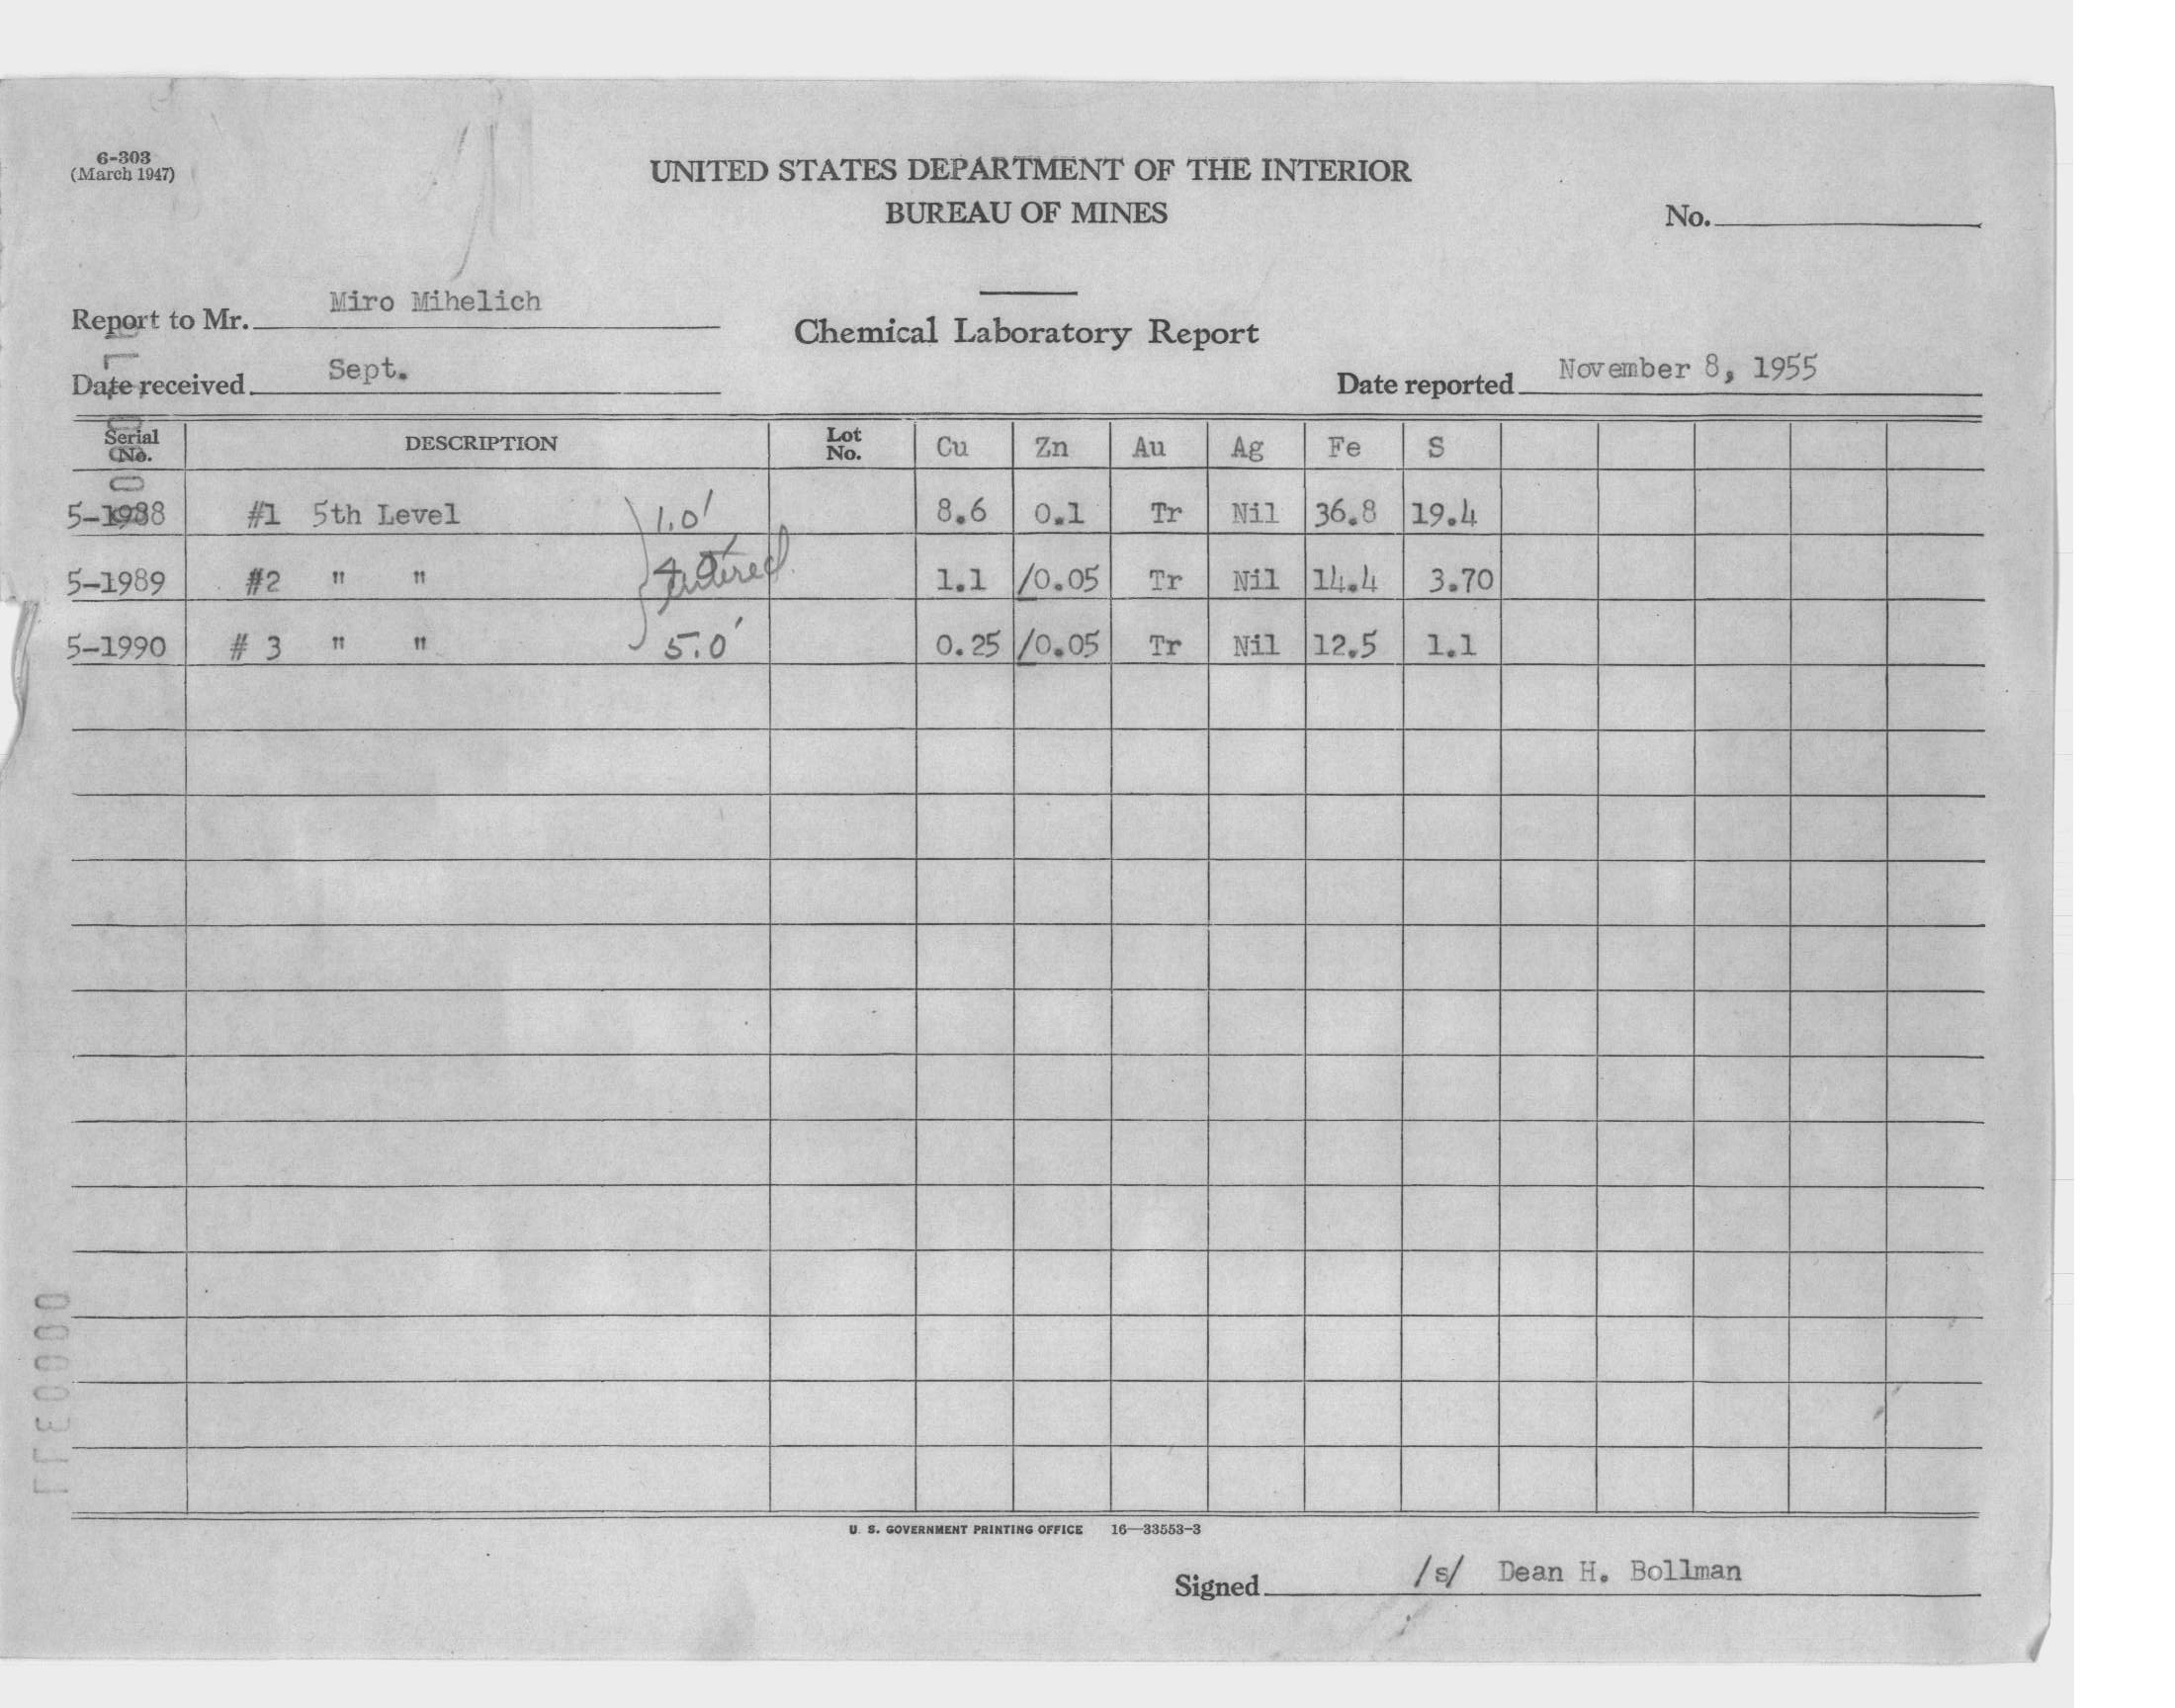 6-303
(March 1947)
UNITED STATES DEPARTMENT OF THE INTERIOR
BUREAU OF MINES
No.
Report to Mr. Miro Mihelich
Chemical Laboratory Report
Date received Sept.
Date reported November 8, 1955
Serial No. DESCRIPTION Lot No. Cu Zn Au Ag Fe S
5-1988 #1 5th Level 1.0' 8.6 0.1 Tr Nil 36.8 19.4
5-1989 #2 " " Entered 1.1 /0.05 Tr Nil 14.4 3.70
5-1990 # 3 " " 5.0' 0.25 /0.05 Tr Nil 12.5 1.1
U. S. GOVERNMENT PRINTING OFFICE 16—33553-3
Signed /s/ Dean H. Bollman